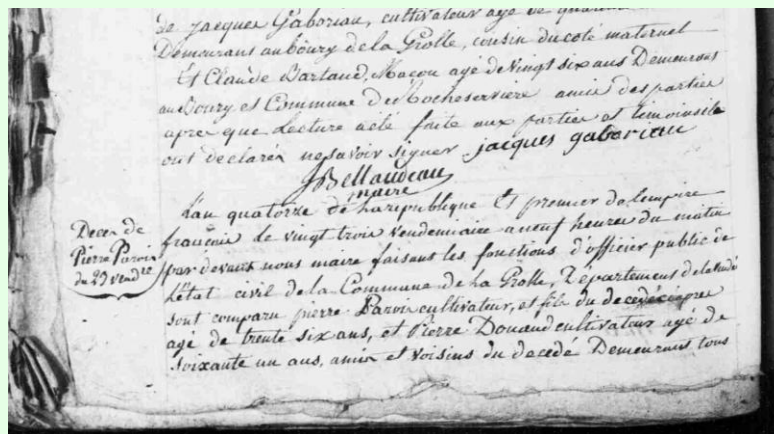 de jacques Gaboriau, cultivateur agé de quarante
Demeurant au boury de la Grolle, cousin du coté maternel
Et Claude Bartaud, Macon agé de vingt six ans Demeurant
au Boury et Commune de Rocheserviere amis des partie
apres que lecture a été faite aux partie et temoins ils
ont declarés ne savoir signer jacques gaboriau
JBellaudeau
maire
Decès de
Pierre Parois
du 23 vendre
L'an quatorze de la republique Et premier de l'empire
français le vingt trois vendemiaire a neuf heures du matin
par devant nous maire faisant les fonctions d'officier public de
l'Etat civil de la Commune de la Grolle, Département de la Vendé
sont comparu pierre Parois cultivateur, et fils du decedé
agé de trente six ans, et Pierre Douaud cultivateur agé de
soixante un ans, amis et voisins du decedé Demeurans tous